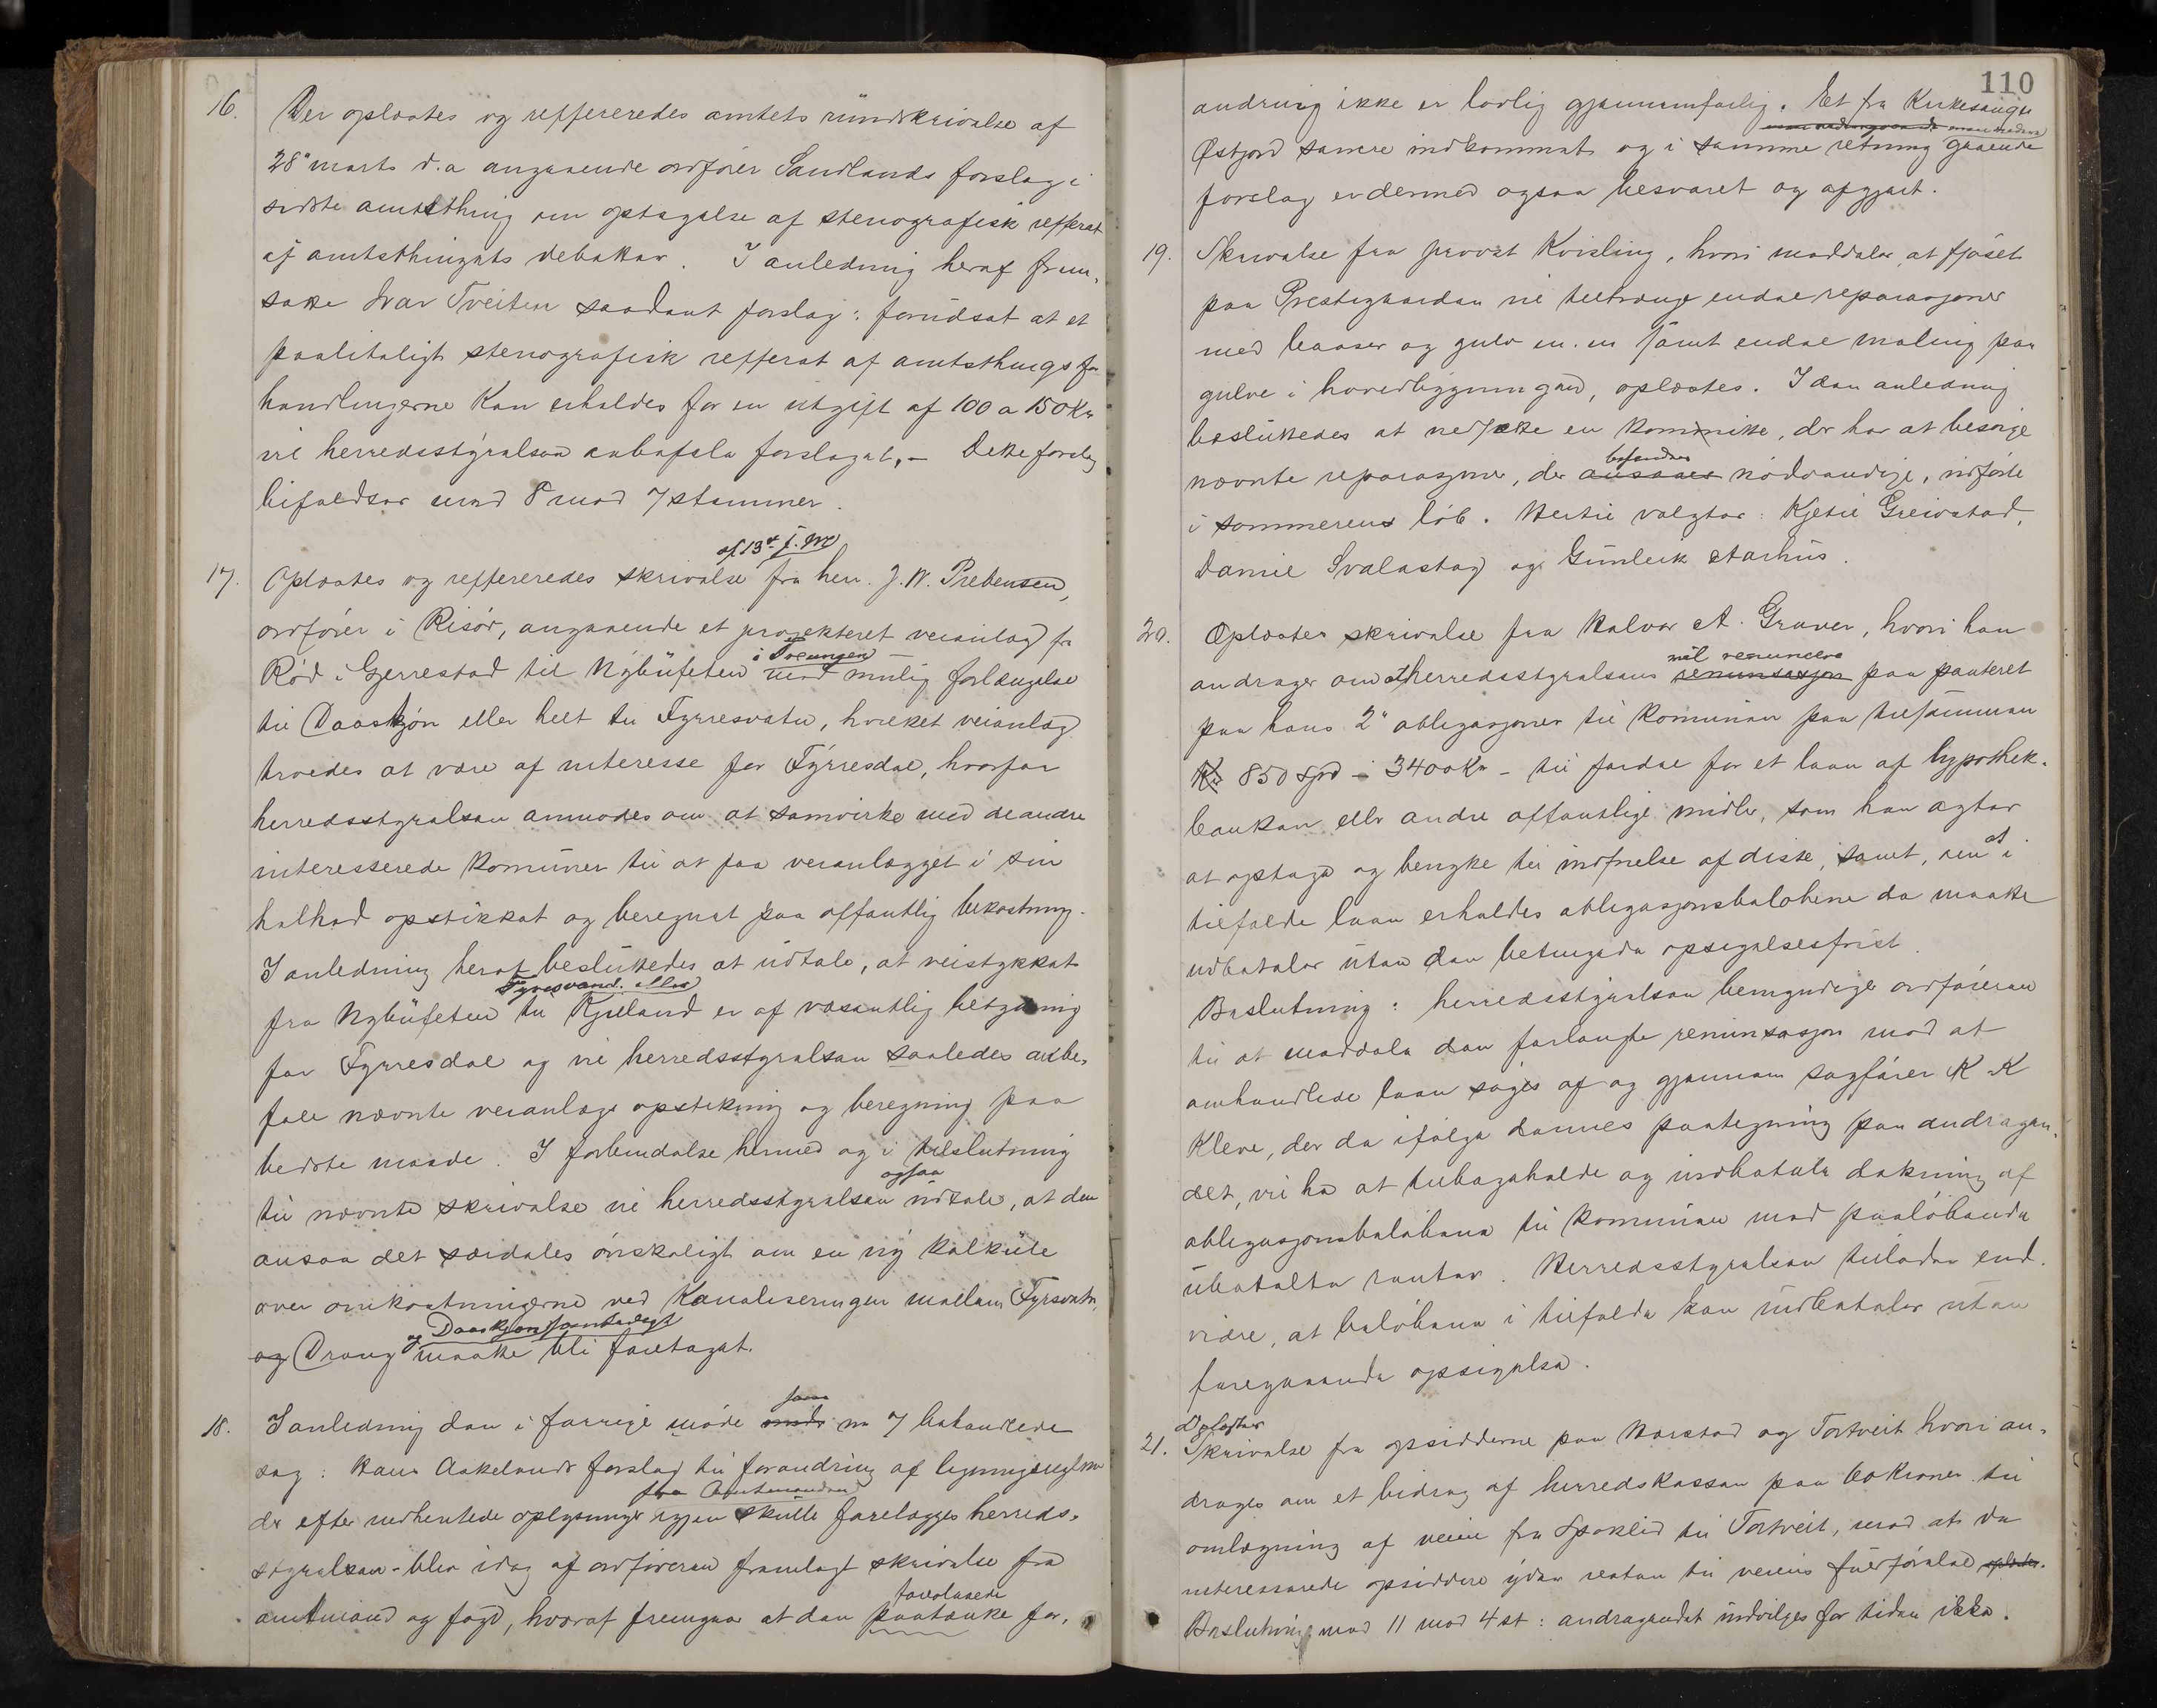 16. Der oplæstes og reffereredes amtets rundskrivelse af
28de marts d.a angaaende ordfører Sandlands forslag i
sidste amtsthing om optagelse af stenografisk refferat
af amtsthingets debatter. I anledning heraf frem-
satte Ivar Tveiten saadant forslag: forudsat at et
paaliteligt stenografisk refferat af amtsthingsfor-
handlingerne kan erholdes for en utgift af 100 a 150 Kr
vil herredsstyrelsen anbefale forslaget. – Dette forslag
bifaldtes med 8 mod 7 stemmer.
af 13de f. M
17. Oplæstes og reffereredes skrivelse fra herr. J. W. Prebensen,
ordfører i Risør, angaaende et projekteret veianlæg fra
i Treungen
Rød i Gjerrestad til Nybufeten med mulig forlængelse
til Daaskjøn eller helt til Fyrresvatn, hvilket veianlæg
troedes at være af interesse for Fyrresdal, hvorfor
herredsstyrelsen anmodes om at samvirke med de andre
interesserede komuner til at faa veianlægget i sin
helhed opstikket og beregnet paa offentlig bekostning.
I anledning heraf besluttedes at udtale, at veistykket
Fyresvand eller
fra Nybufeten til Kjeland er af væsentlig betydning
for Fyrresdal og vil herredsstyrelsen saaledes anbe-
fale nævnte veianlægs opstikning og beregning paa
bedste maade. I forbindelse hermed og i tilslutning
ogsaa
til nævnte skrivelse vil herredsstyrelsen udtale, at den
ansaa det særdeles ønskeligt om en ny kalkule
over omkostningerne ved Kanaliseringen mellem Fyrsvatn,
og Daaskjøn
og Drang maatte bli foretaget.
18. I anledning den i forrige møde nr 7 behandlede
sag: Hans Aakelands forslag til forandring af ligningsreglerne
fra Amtmanden
der efter indhentede oplysninger igjen skulle forelægges herreds-
styrelsen – blev idag af ordføreren fremlagt skrivelse fra
foreslaaede
amtmand og fogd, hvoraf fremgaar at den paatænkte for-
110
andring ikke er lovlig gjennemførlig. Et fra Kirkesanger
Østgård senere indkommet og i samme retning gaaende
forslag er dermed ogsaa besvaret og afgjort.
19. Skrivelse fra provst Kvisling, hvori meddeles at fjøset
paa Prestegaarden vil tiltrænge endel reparasjoner
med baaser og gulv m.m samt endel maling paa
gulve i hovedbygningen, oplæstes. I den anledning
besluttedes at nedsætte en komitte, der har at besørge
befindes
nævnte reparasjoner, der ansaaes nødvendige, udførte
i sommerens løb. Hertil valgtes: Kjetil Greivstad,
Daniel Svalastog og Gunleik Aarhus.
20. Oplæstes skrivelse fra Halvor A. Graver, hvori han
vil renuncere
andrager om at herredsstyrelsens renunsasjon paa panteret
paa hans 2de obligasjoner til komunen paa tilsammen
Kr 850 Spd – 3400 Kr – til fordel for et laan af hypothek-
banken eller andre offentlige midler, som han agter
at
at optage og benytte til indfrielse af disse, samt, om i
tilfælde laan erholdes obligasjonsbeløbene da maatte
udbetales uten den betingede opsigelsesfrist.
Beslutning: herredsstyrelsen bemyndiger ordføreren
til at meddele den forlangte renunsasjon mod at
omhandlede laan søges af og gjennem sagfører K. K
Kleve, der da ifølge dennes paategning paa andragen-
det, vil ha at tilbageholde og indbetale dækning af
obligasjonsbeløbene til komunen med paaløbende
ubetalte renter. Herredsstyrelsen tillader end-
videre, at beløbene i tilfælde kan indbetales uten
foregaaende opsigelse.
Oplæstes
21. Skrivelse fra opsidderne paa Harstad og Tortveit hvori an-
drages om et bidrag af herredskassen paa 60 kroner til
omlægning af veien fra Spoklid til Tortveit, mod at de
interesserede opsiddere yder resten til veiens fuldførelse oplæstes.
Beslutning mod 11 mod 4 st: andragendet indvilges for tiden ikke.